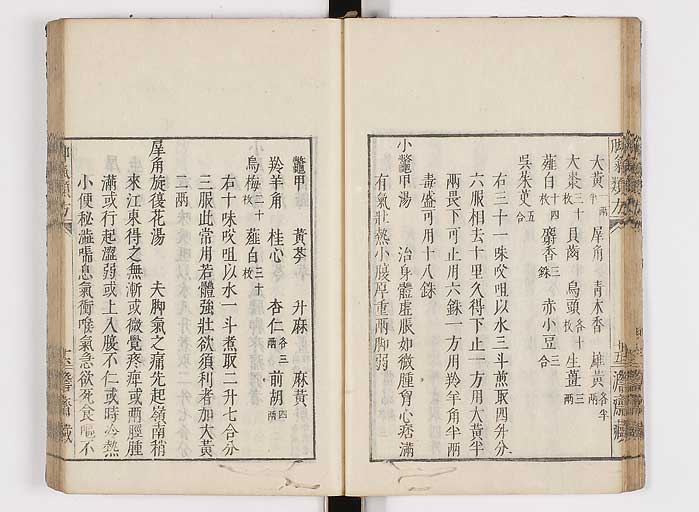 大黃 一兩半 犀角 青木香 雄黃 各半兩
大棗 三十枚 貝齒 烏頭 各十枚 生薑 三兩
薤白 十四枚 麝香 三銖 赤小豆 三合
吳茱萸 五合
右三十一味㕮咀以水三斗煎取四升分
六服相去十里久得下止一方用大黃半
兩畏下可止用六銖一方用羚羊角半兩
毒盛可用十八銖
小鱉甲湯 治身體虛脹如微腫胷心痞滿
有氣壯熱小腹厚重兩脚弱
鱉甲 黃芩 升麻 麻黃
羚羊角 桂心 杏仁 各三兩 前胡 四兩
烏梅 二十枚 薤白 三十枚
右十味㕮咀以水一斗煮取二升七合分
三服此常用若體強壯欲須利者加大黃
二兩
犀角旋覆花湯 夫脚氣之痛先起嶺南稍
來江東得之無漸或微覺疼痺或兩脛腫
滿或行起澀弱或上入腹不仁或時冷熱
小便秘澁喘息氣衝喉氣急欲死食嘔不